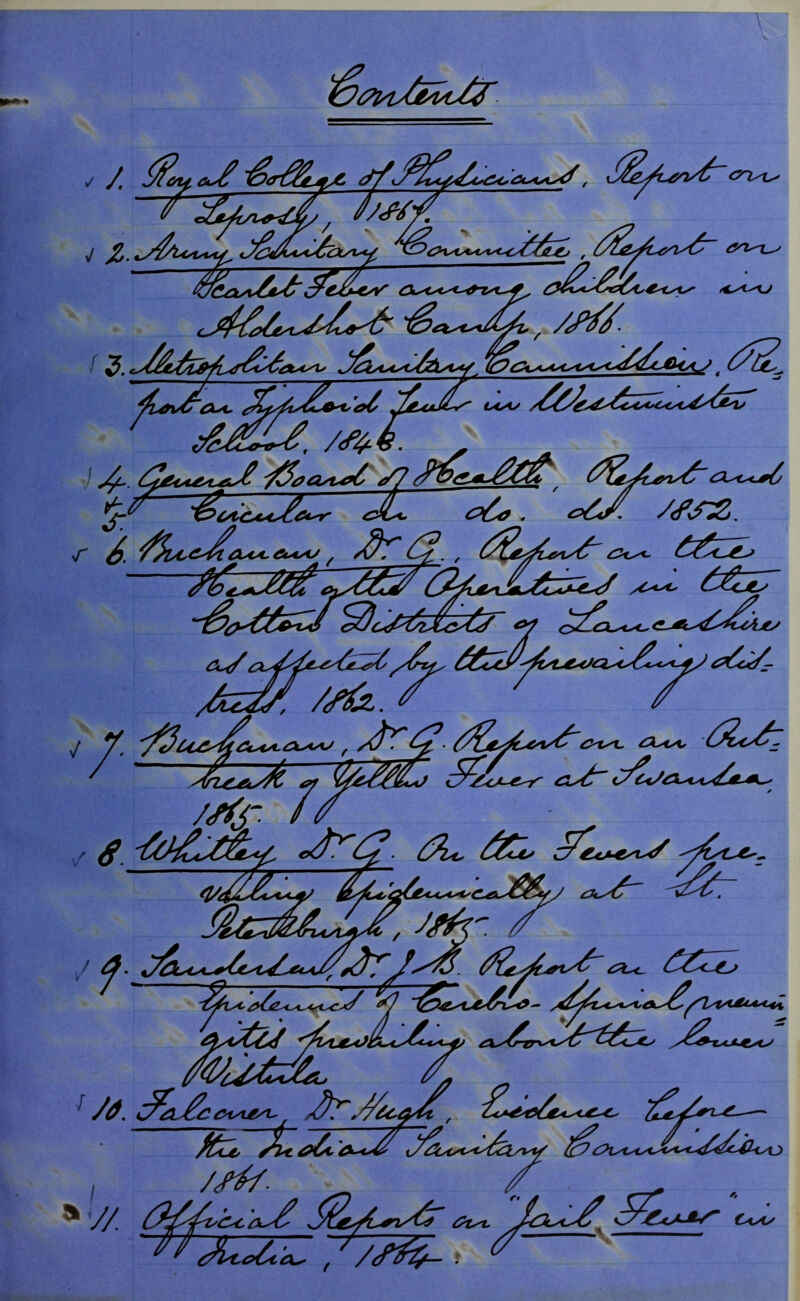 Contents
1. Royal College of Physicians, Report on
Leprosy, 1867.
2. Army Sanitary Committee, Report on
Scarlet Fever among children in
Aldershot Camp, 1866.
3. Metropolitan Sanitary Commission, Re=
port on Typhoid fever in Westminster
School, 1848.
4. General Board of Health, Report and
+ 5. Circular on do. do. 1852.
6. Buchanan, Dr G., Report on the
Health of the Operatives in the
Cotton Districts of Lancashire
as affected by the prevailing dis=
tress, 1862.
7. Buchanan, Dr G. Report on an Out=
break of Yellow Fever at Swansea,
1865.
8. Whitley Dr G. On the Fevers pre=
vailing epidemically at St.
Petersburgh, 1865.
9. Sanderson, Dr J B. Report on the
Epidemics of Cerebro-Spinal menin=
gitis prevailing about the lower
Vistula
10. Falconer, Dr Hugh, Evidence before
the Indian Sanitary Commission
1861.
11. Official Reports on "Jail Fever" in
India, 1864.